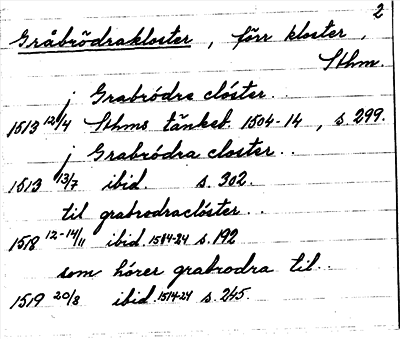 2
Gråbrödrakloster, förr kloster,
Sthm.
j Grabródre clóster..
1513 12/4 Sthms tänkeb. 1504-14, s. 299.
j Grabródra closter..
1513 13/7 ibid. s. 302.
til grabrodraclóster..
1518 12-14/11 ibid. 1514-24 s. 192
som hórer grabrodra til..
1519 20/8 ibid. 1514-24 s. 245.